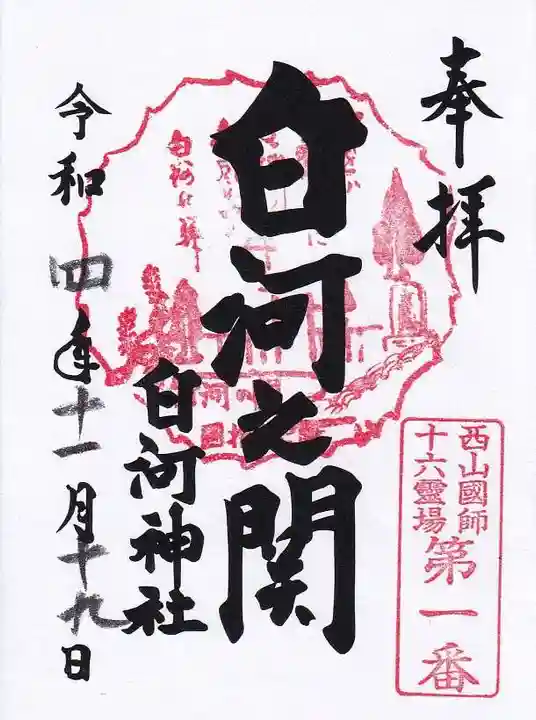 奉拝
西山國師
十六霊場
第一番
白河之関
白河神社
令和四年十一月十九日